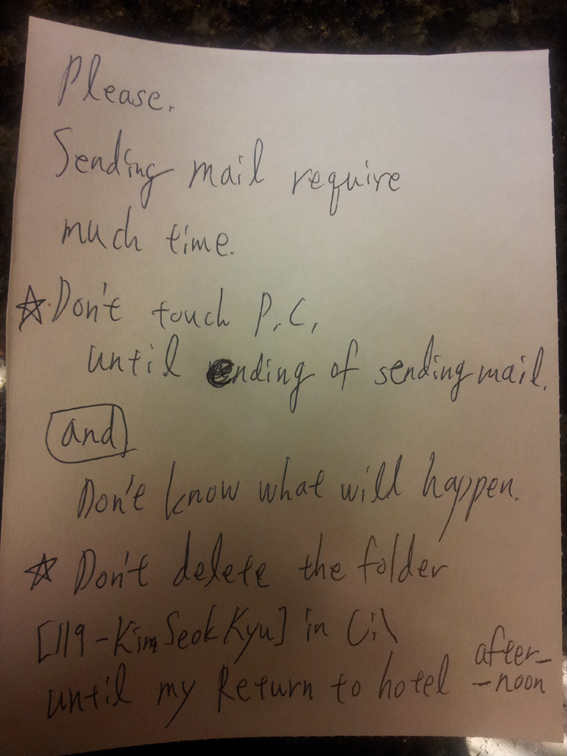 Please.
Sending mail require
much time.
☆ Don't touch P.C,
until ending of sending mail.
and
Don't know what will happen.
☆ Don't delete the folder
[119-Kim SeokKyu] in C:\
until my Return to hotel after-
-noon